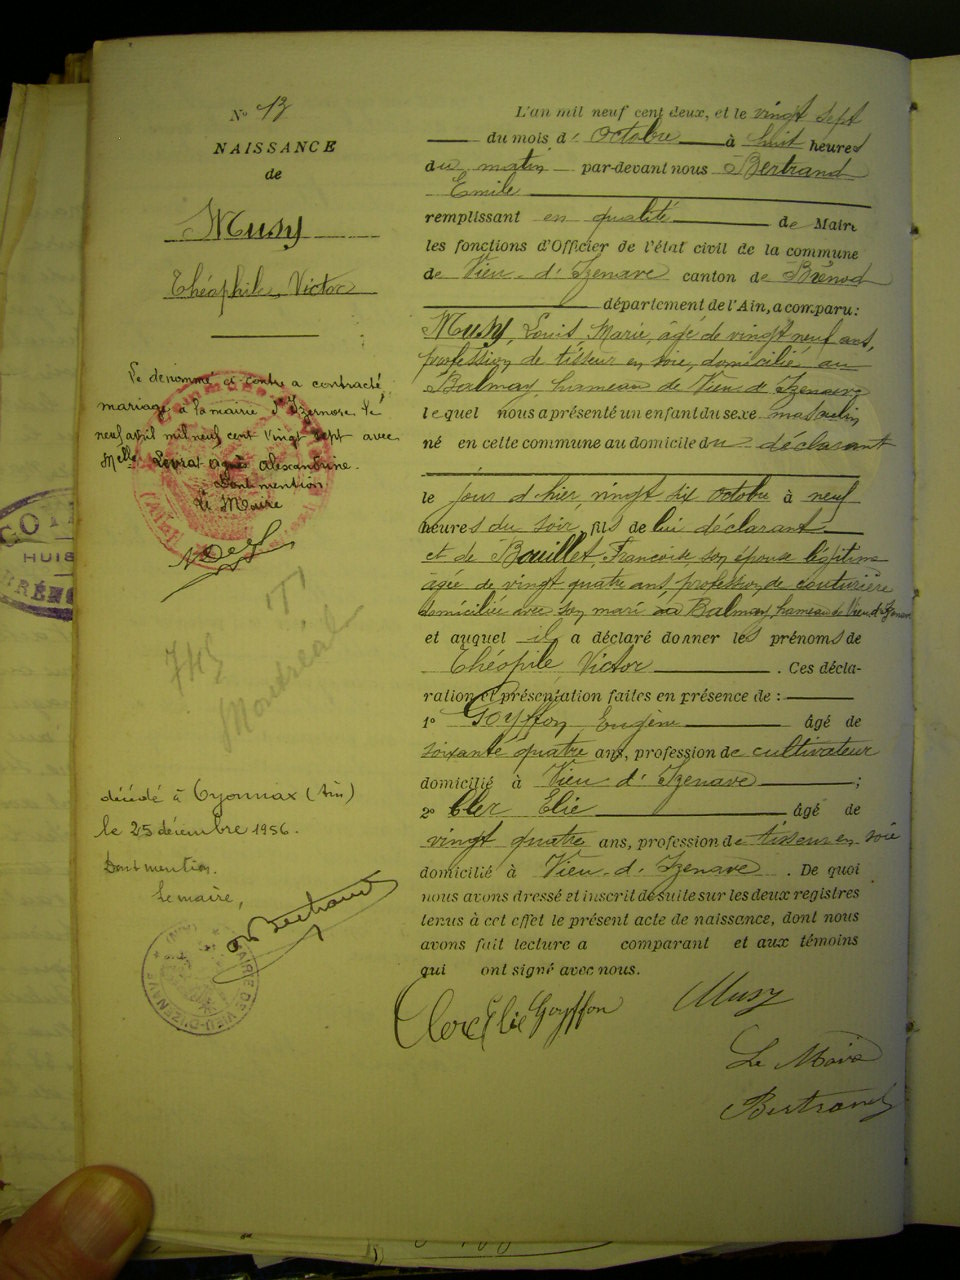 N° 13
NAISSANCE
de
Musy
Théophile, Victor
Le dénommé ci contre a contracté
mariage à la mairie d'Izernore le
neuf avril mil neuf cent vingt sept avec
Melle Levrat Agnès Alexandrine.
Dont mention
Le Maire
décédé à Oyonnax (Ain)
le 25 décembre 1956.
Dont mention.
Le maire,
Bertrand
MAIRIE DE VIEU-D'IZENAVE
(AIN)
HUIS
L'an mil neuf cent deux, et le vingt sept
du mois d' Octobre à huit heures
du matin par-devant nous Bertrand
Emile
remplissant en qualité de Maire
les fonctions d'Officier de l'état civil de la commune
de Vieu-d'Izenave canton de Brénod
département de l'Ain, a comparu :
Musy, Louis Marie, âgé de vingt neuf ans,
profession de tisseur en soie, domicilié au
Balmay, hameau de Vieu-d'Izenave
lequel nous a présenté un enfant du sexe masculin
né en cette commune au domicile du déclarant
le jour d'hier, vingt six octobre à neuf
heures du soir, fils de lui déclarant
et de Bouillet, Françoise son épouse légitime
âgée de vingt quatre ans, profession de couturière
domiciliée avec son mari au Balmay, hameau de Vieu d'Izenave
et auquel il a déclaré donner les prénoms de
Théopile, Victor . Ces décla-
ration et présentation faites en présence de :
1° Goyffon Eugène âgé de
soixante quatre ans, profession de cultivateur
domicilié à Vieu-d'Izenave ;
2° Clerc Elie âgé de
vingt quatre ans, profession de tisseur en soie
domicilié à Vieu-d'Izenave . De quoi
nous avons dressé et inscrit de suite sur les deux registres
tenus à cet effet le présent acte de naissance, dont nous
avons fait lecture a comparant et aux témoins
qui ont signé avec nous.
Clerc Elie Goyffon Musy
Le Maire
Bertrand
743
Montréal